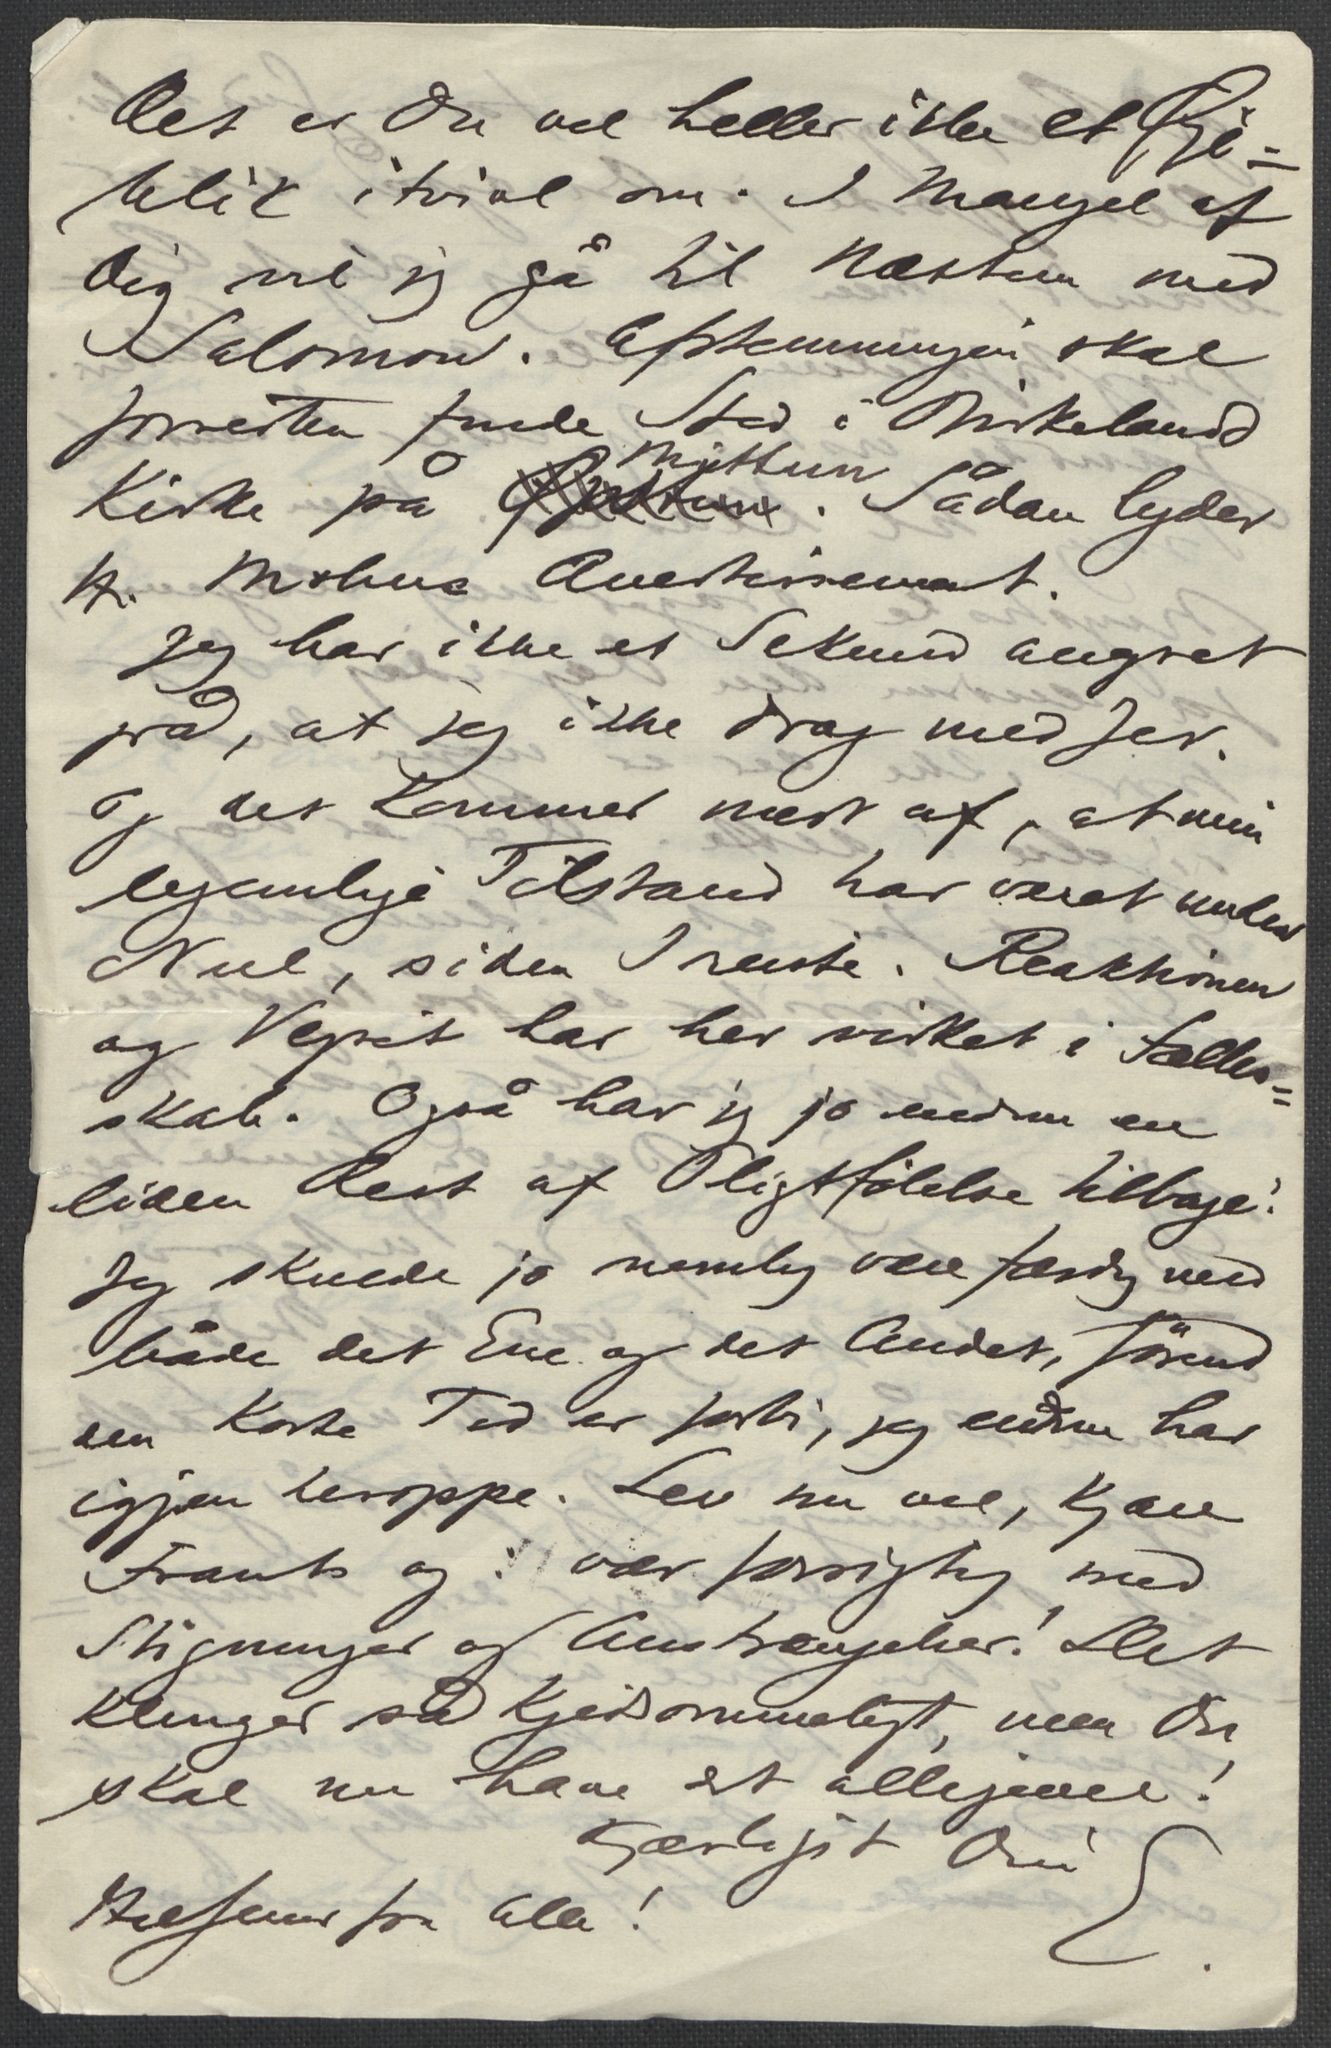 Det er Du vel heller ikke et Øje=
blik i tvivl om. I Mangel af
Dig vil jeg gå til Næsten med
Salomon. Afstemningen skal
forresten finde Sted i Birkelands
Kirke på Mjeltun. Sådan lyder
Hr. Mohns Avertissement.
Jeg har ikke et Sekund angret
på, at jeg ikke drog med Jer.
Og det kommer mest af, at min
legemlige Tilstand har været under
Nul, siden I reiste. Reaktionen
og Veyret har her virket i Fælles=
skab. Også har jeg jo endnu en
liden Rest af Pligtfølelse tilbage:
Jeg skulde jo nemlig være færdig med
både det Ene og det Andet, förend
den korte Tid er forbi, jeg endnu har
igjen heroppe. Lev nu vel, kjære
Frants og: vær forsigtig med
Stigninger og Anstrængelser! Det
klinger så kjedsommeligt, men Du
skal nu have det alligevel!
Kjærligst Din E.
Hilsener fra Alle!